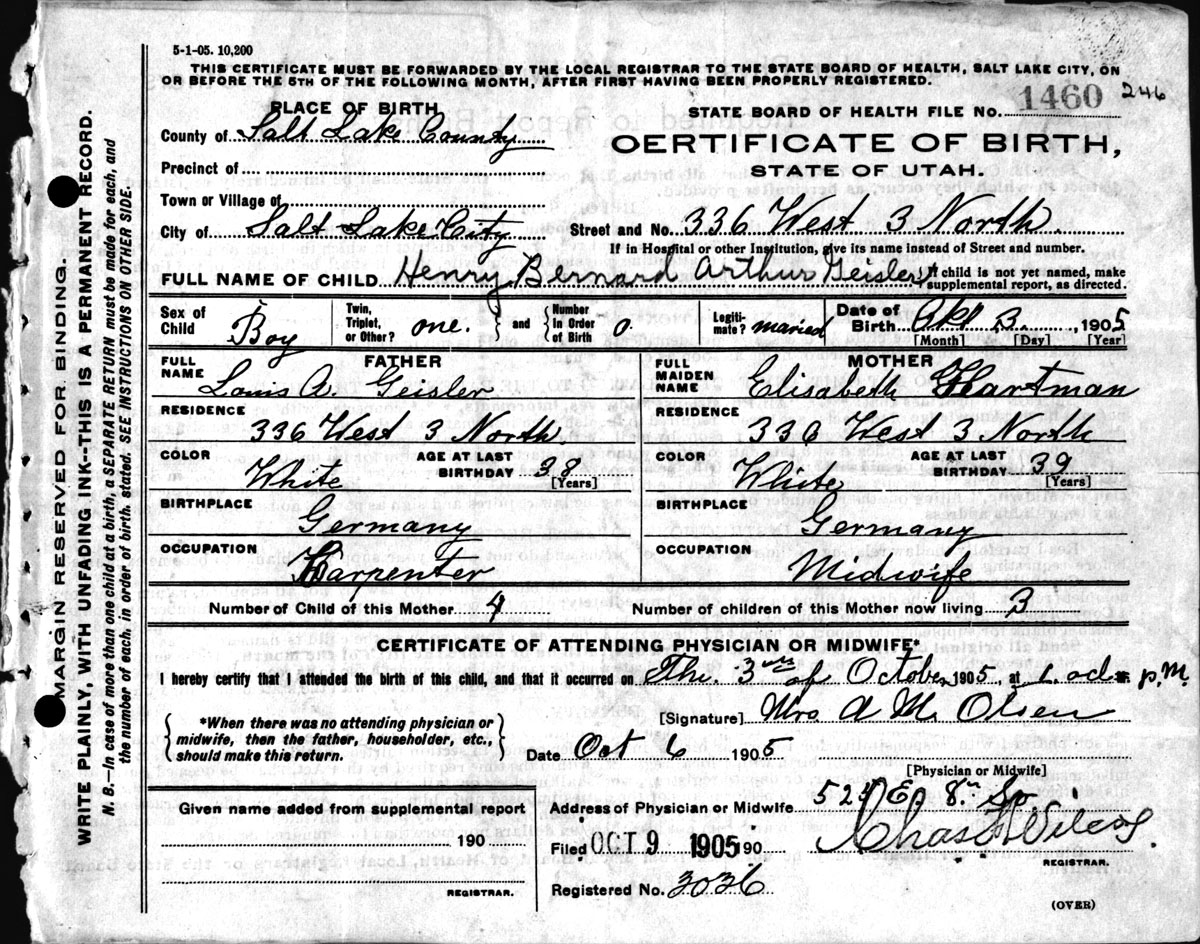 5-1-05. 10,200
THIS CERTIFICATE MUST BE FORWARDED BY THE LOCAL REGISTRAR TO THE STATE BOARD OF HEALTH, SALT LAKE CITY, ON
OR BEFORE THE 5TH OF THE FOLLOWING MONTH, AFTER FIRST HAVING BEEN PROPERLY REGISTERED.
PLACE OF BIRTH
STATE BOARD OF HEALTH FILE NO. 1460 246
County of Salt Lake County
CERTIFICATE OF BIRTH,
STATE OF UTAH.
Precinct of
Town or Village of
City of Salt Lake City Street and No. 336 West 3 North
If in Hospital or other Institution, give its name instead of Street and number.
FULL NAME OF CHILD Henry Bernard Arthur Geisler If child is not yet named, make
supplemental report, as directed.
Sex of Child Boy Twin, Triplet, or Other? one. and Number in Order of Birth 0 Legiti- mate? married Date of Birth Okt 3 1905
[Month] [Day] [Year]
FATHER MOTHER
FULL NAME Louis A. Geisler FULL MAIDEN NAME Elisabeth Hartman
RESIDENCE RESIDENCE
336 West 3 North 336 West 3 North
COLOR White AGE AT LAST BIRTHDAY 38 [Years] COLOR White AGE AT LAST BIRTHDAY 39 [Years]
BIRTHPLACE BIRTHPLACE
Germany Germany
OCCUPATION OCCUPATION
Carpenter Midwife
Number of Child of this Mother 4 Number of children of this Mother now living 3
CERTIFICATE OF ATTENDING PHYSICIAN OR MIDWIFE*
I hereby certify that I attended the birth of this child, and that it occurred on The 3 of October 1905, at 1. p.M.
*When there was no attending physician or
midwife, then the father, householder, etc.,
should make this return.
[Signature] Mrs A M Olsen
Date Oct 6 1905
[Physician or Midwife]
Given name added from supplemental report
190
REGISTRAR.
Address of Physician or Midwife
Filed OCT 9 1905 190 Chas Wilcox
REGISTRAR.
Registered No. 3036
(OVER)
MARGIN RESERVED FOR BINDING.
WRITE PLAINLY, WITH UNFADING INK--THIS IS A PERMANENT RECORD.
N. B.--In case of more than one child at a birth, a SEPARATE RETURN must be made for each, and
the number of each, in order of birth, stated. SEE INSTRUCTIONS ON OTHER SIDE.